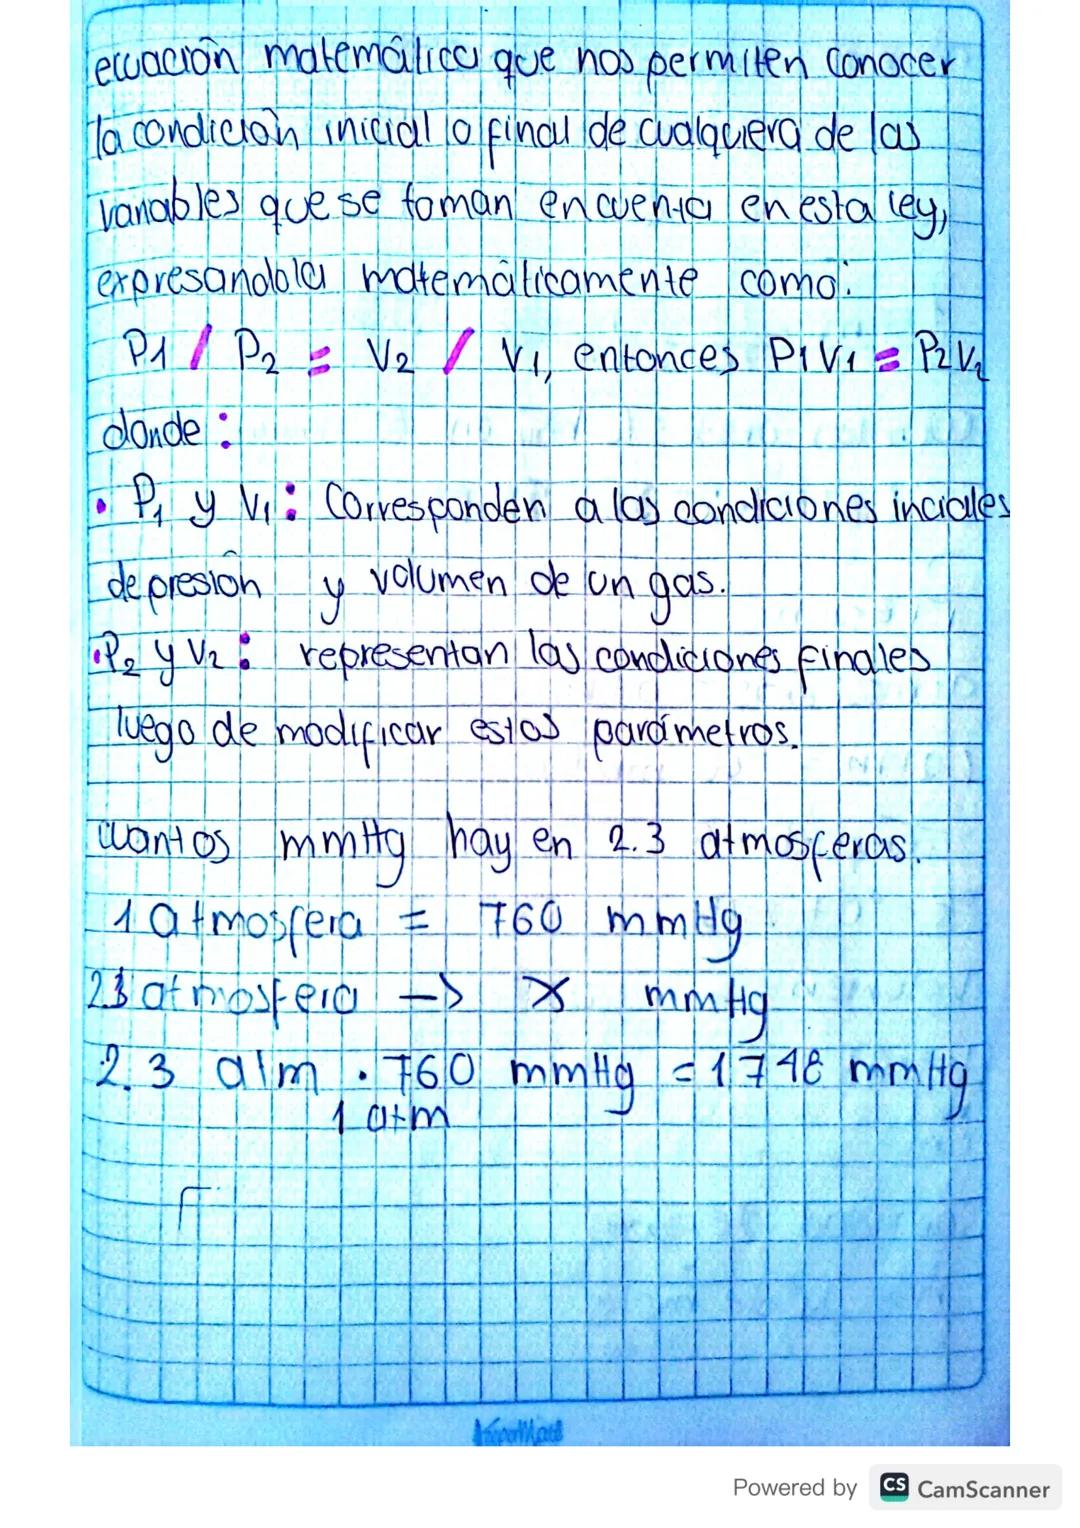 ecuación matemática que nos permiten conocer
la condición inicial o final de cualquiera de las
variables que se toman encuenta en esta ley,
expresandola matemáticamente como:
P1 / P2 = V2 / V1, entonces P1V1 = P2V2
donde:
• P1 y V1: Corresponden a las condiciones inciales
de presión y volumen de un gas.
• P2 y V2: representan las condiciones finales
luego de modificar estos parámetros.
cuantos mmHg hay en 2.3 atmosferas.
1 atmosfera = 760 mmHg
2.3 atmosfera -> x mmHg
2.3 atm . 760 mmHg = 1748 mmHg
1 atm
Powered by CS CamScanner